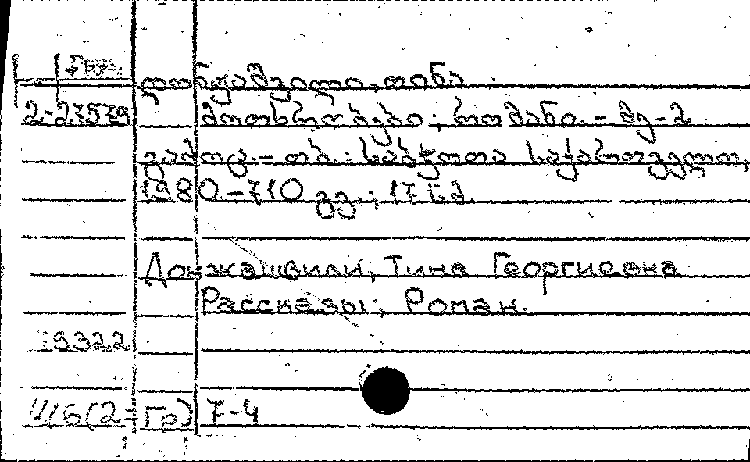 დონჟაშვილი, თინა
2-27579 მოთხრობები; რომანი. - მე-2
გამოც. - თბ.: საბჭოთა საქართველო,
1980. - 710 გვ.; 17 სმ.
Донжашвили, Тина Георгиевна
Рассказы; Роман.
Ш6(2=Гр)7-4